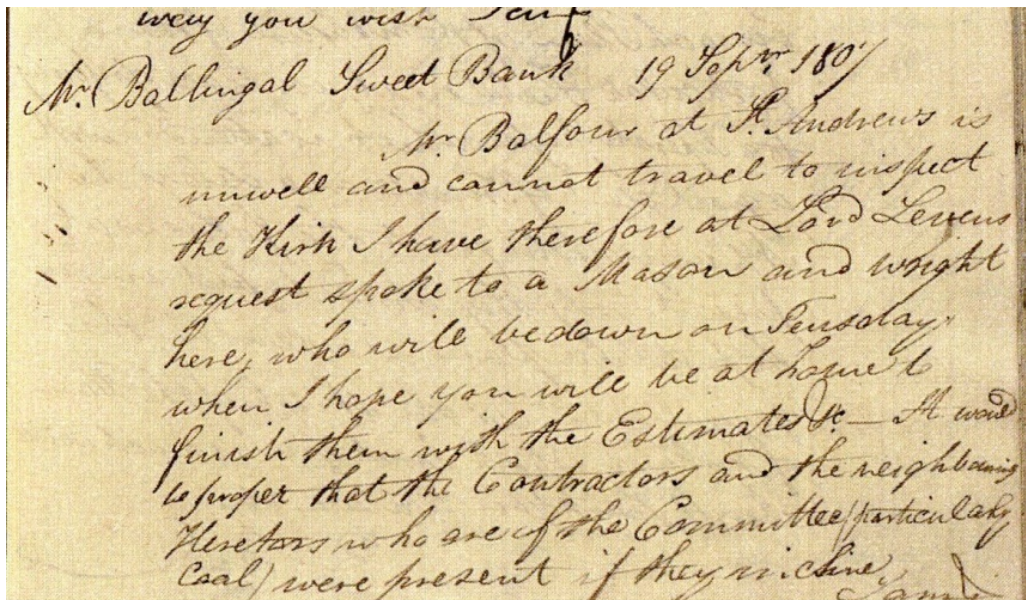 way you wish I am
Mr. Ballingal Sweet Bank 19 Septr. 1807
Mr. Balfour at St. Andrews is
unwell and cannot travel to inspect
the Kirk I have therefore at Lord Levens
request spoke to a Mason and wright
here, who will be down on Teusday
when I hope you will be at home to
finish them with the Estimates &c — It would
be proper that the Contractors and the neighbouring
Heretors who are of the Committee (particularly
Coal) were present if they incline